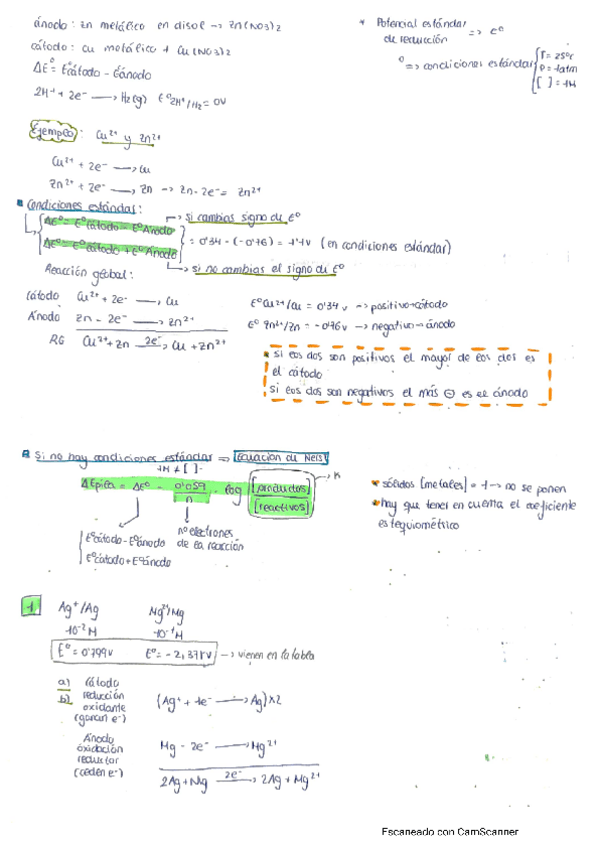 ánodo: Zn metálico en disol → Zn(NO3)2
cátodo: Cu metálico + Cu(NO3)2
ΔE° = E°cátodo - E°ánodo
2H⁺ + 2e⁻ → H2(g) E°2H⁺/H2 = 0V
* Potencial estándar de reducción => E°
° => condiciones estándar
T = 25°C
P = 1atm
[ ] = 1M
Ejemplo: Cu²⁺ y Zn²⁺
Cu²⁺ + 2e⁻ → Cu
Zn²⁺ + 2e⁻ → Zn → Zn - 2e⁻ = Zn²⁺
Condiciones estándar:
si cambias signo de E°
ΔE° = E°cátodo - E°Ánodo
ΔE° = E°cátodo + E°Ánodo
= 0'34 - (-0'76) = 1'1V (en condiciones estándar)
si no cambias el signo de E°
Reacción global:
Cátodo Cu²⁺ + 2e⁻ → Cu
Ánodo Zn - 2e⁻ → Zn²⁺
RG Cu²⁺ + Zn 2e⁻→ Cu + Zn²⁺
E°Cu²⁺/Cu = 0'34 V → positivo → cátodo
E° Zn²⁺/Zn = -0'76 V → negativo → ánodo
* Si los dos son positivos el mayor de los dos es
el cátodo
Si los dos son negativos el más ⊖ es el ánodo
Si no hay condiciones estándar => Ecuación de Nerst
1M ≠ [ ]
ΔEpila = ΔE° - 0'059/n · log [productos]/[reactivos] → K
E°cátodo - E°ánodo
E°cátodo + E°ánodo
nº electrones
de la reacción
* sólidos [metales] = 1 → no se ponen
* hay que tener en cuenta el coeficiente
estequiométrico
1 Ag⁺/Ag Mg²⁺/Mg
10⁻² M 10⁻¹ M
E° = 0'799V E° = -2,371V → vienen en la tabla
a) Cátodo
b) reducción
oxidante
(ganan e⁻)
(Ag⁺ + 1e⁻ → Ag) x2
Ánodo
oxidación
reductor
(ceden e⁻)
Mg - 2e⁻ → Mg²⁺
2Ag + Mg 2e⁻→ 2Ag + Mg²⁺
Escaneado con CamScanner